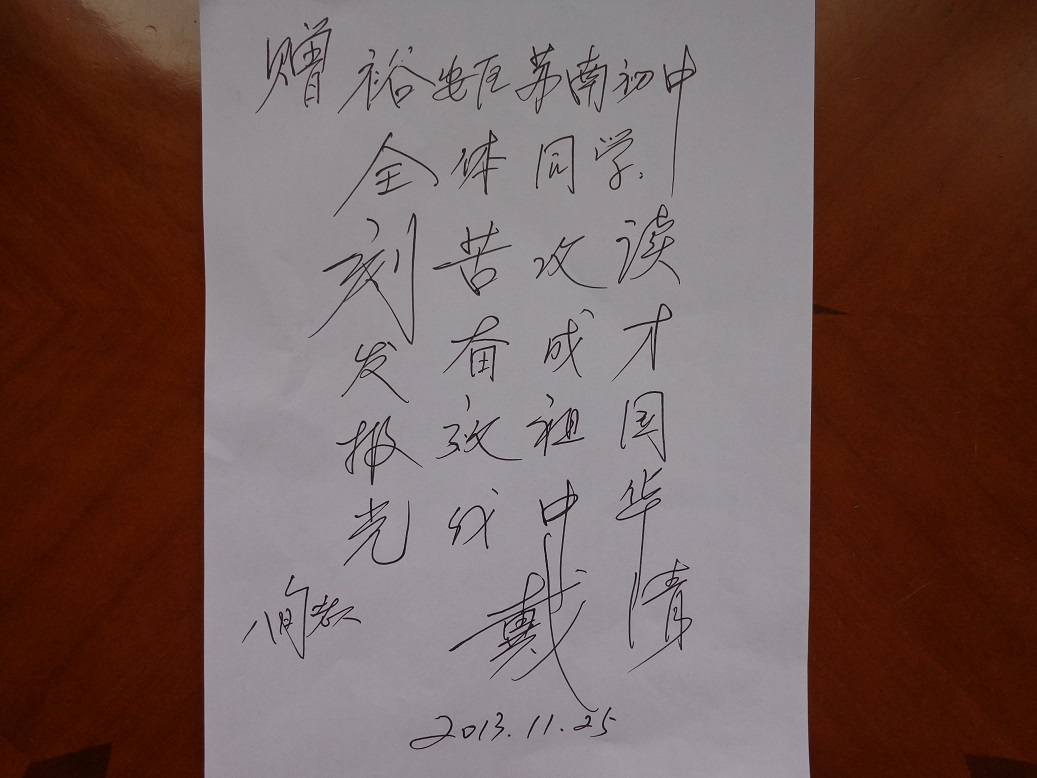 赠裕安区苏南初中
全体同学.
刻苦攻读
发奋成才
报效祖国
光我中华
八旬老人 戴清
2013.11.25